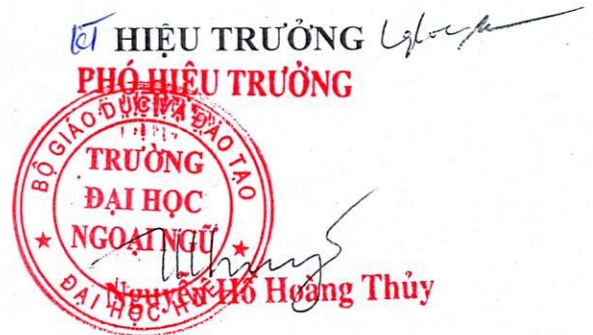 KT HIỆU TRƯỞNG
PHÓ HIỆU TRƯỞNG
BỘ GIÁO DỤC VÀ ĐÀO TẠO
TRƯỜNG
ĐẠI HỌC
NGOẠI NGỮ
ĐẠI HỌC HUẾ
Nguyễn Hồ Hoàng Thủy